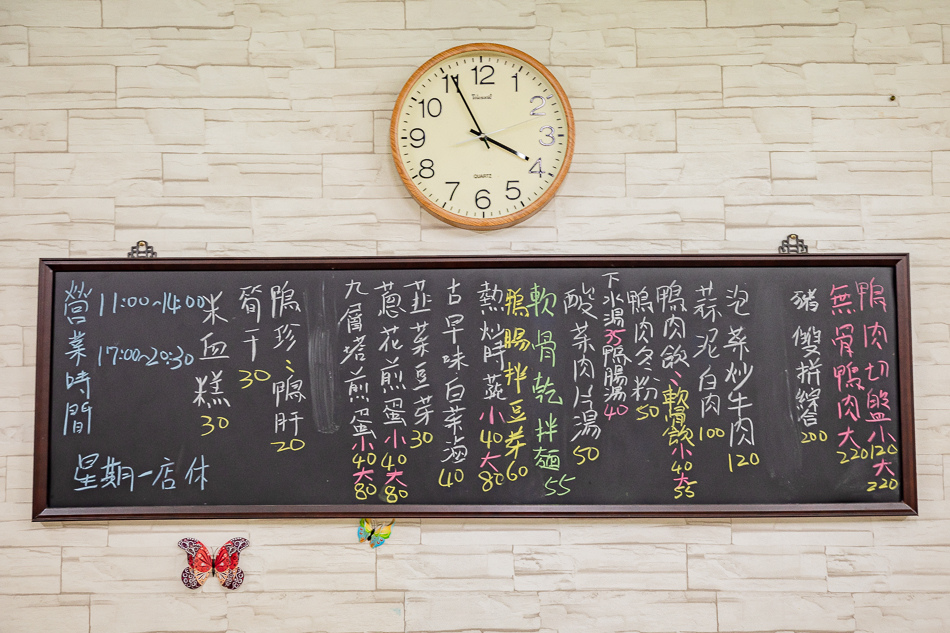 12
1
2
3
4
5
6
7
8
9
10
11
QUARTZ
鴨肉切盤小120大220
無骨鴨肉大220
豬雙拼綜合200
泡菜炒牛肉120
蒜泥白肉100
鴨肉飯、軟骨飯小40大55
鴨肉冬粉50
下水湯35鴨腸湯40
酸菜肉片湯50
軟骨乾拌麵55
鴨腸拌豆芽60
熱拌蔬小40大80
古早味白菜滷40
韮菜豆芽30
蔥花煎蛋小40大80
九層塔煎蛋小40大80
鴨珍、鴨肝20
筍干30
米血糕30
營業時間
11:00~14:00
17:00~20:30
星期一店休